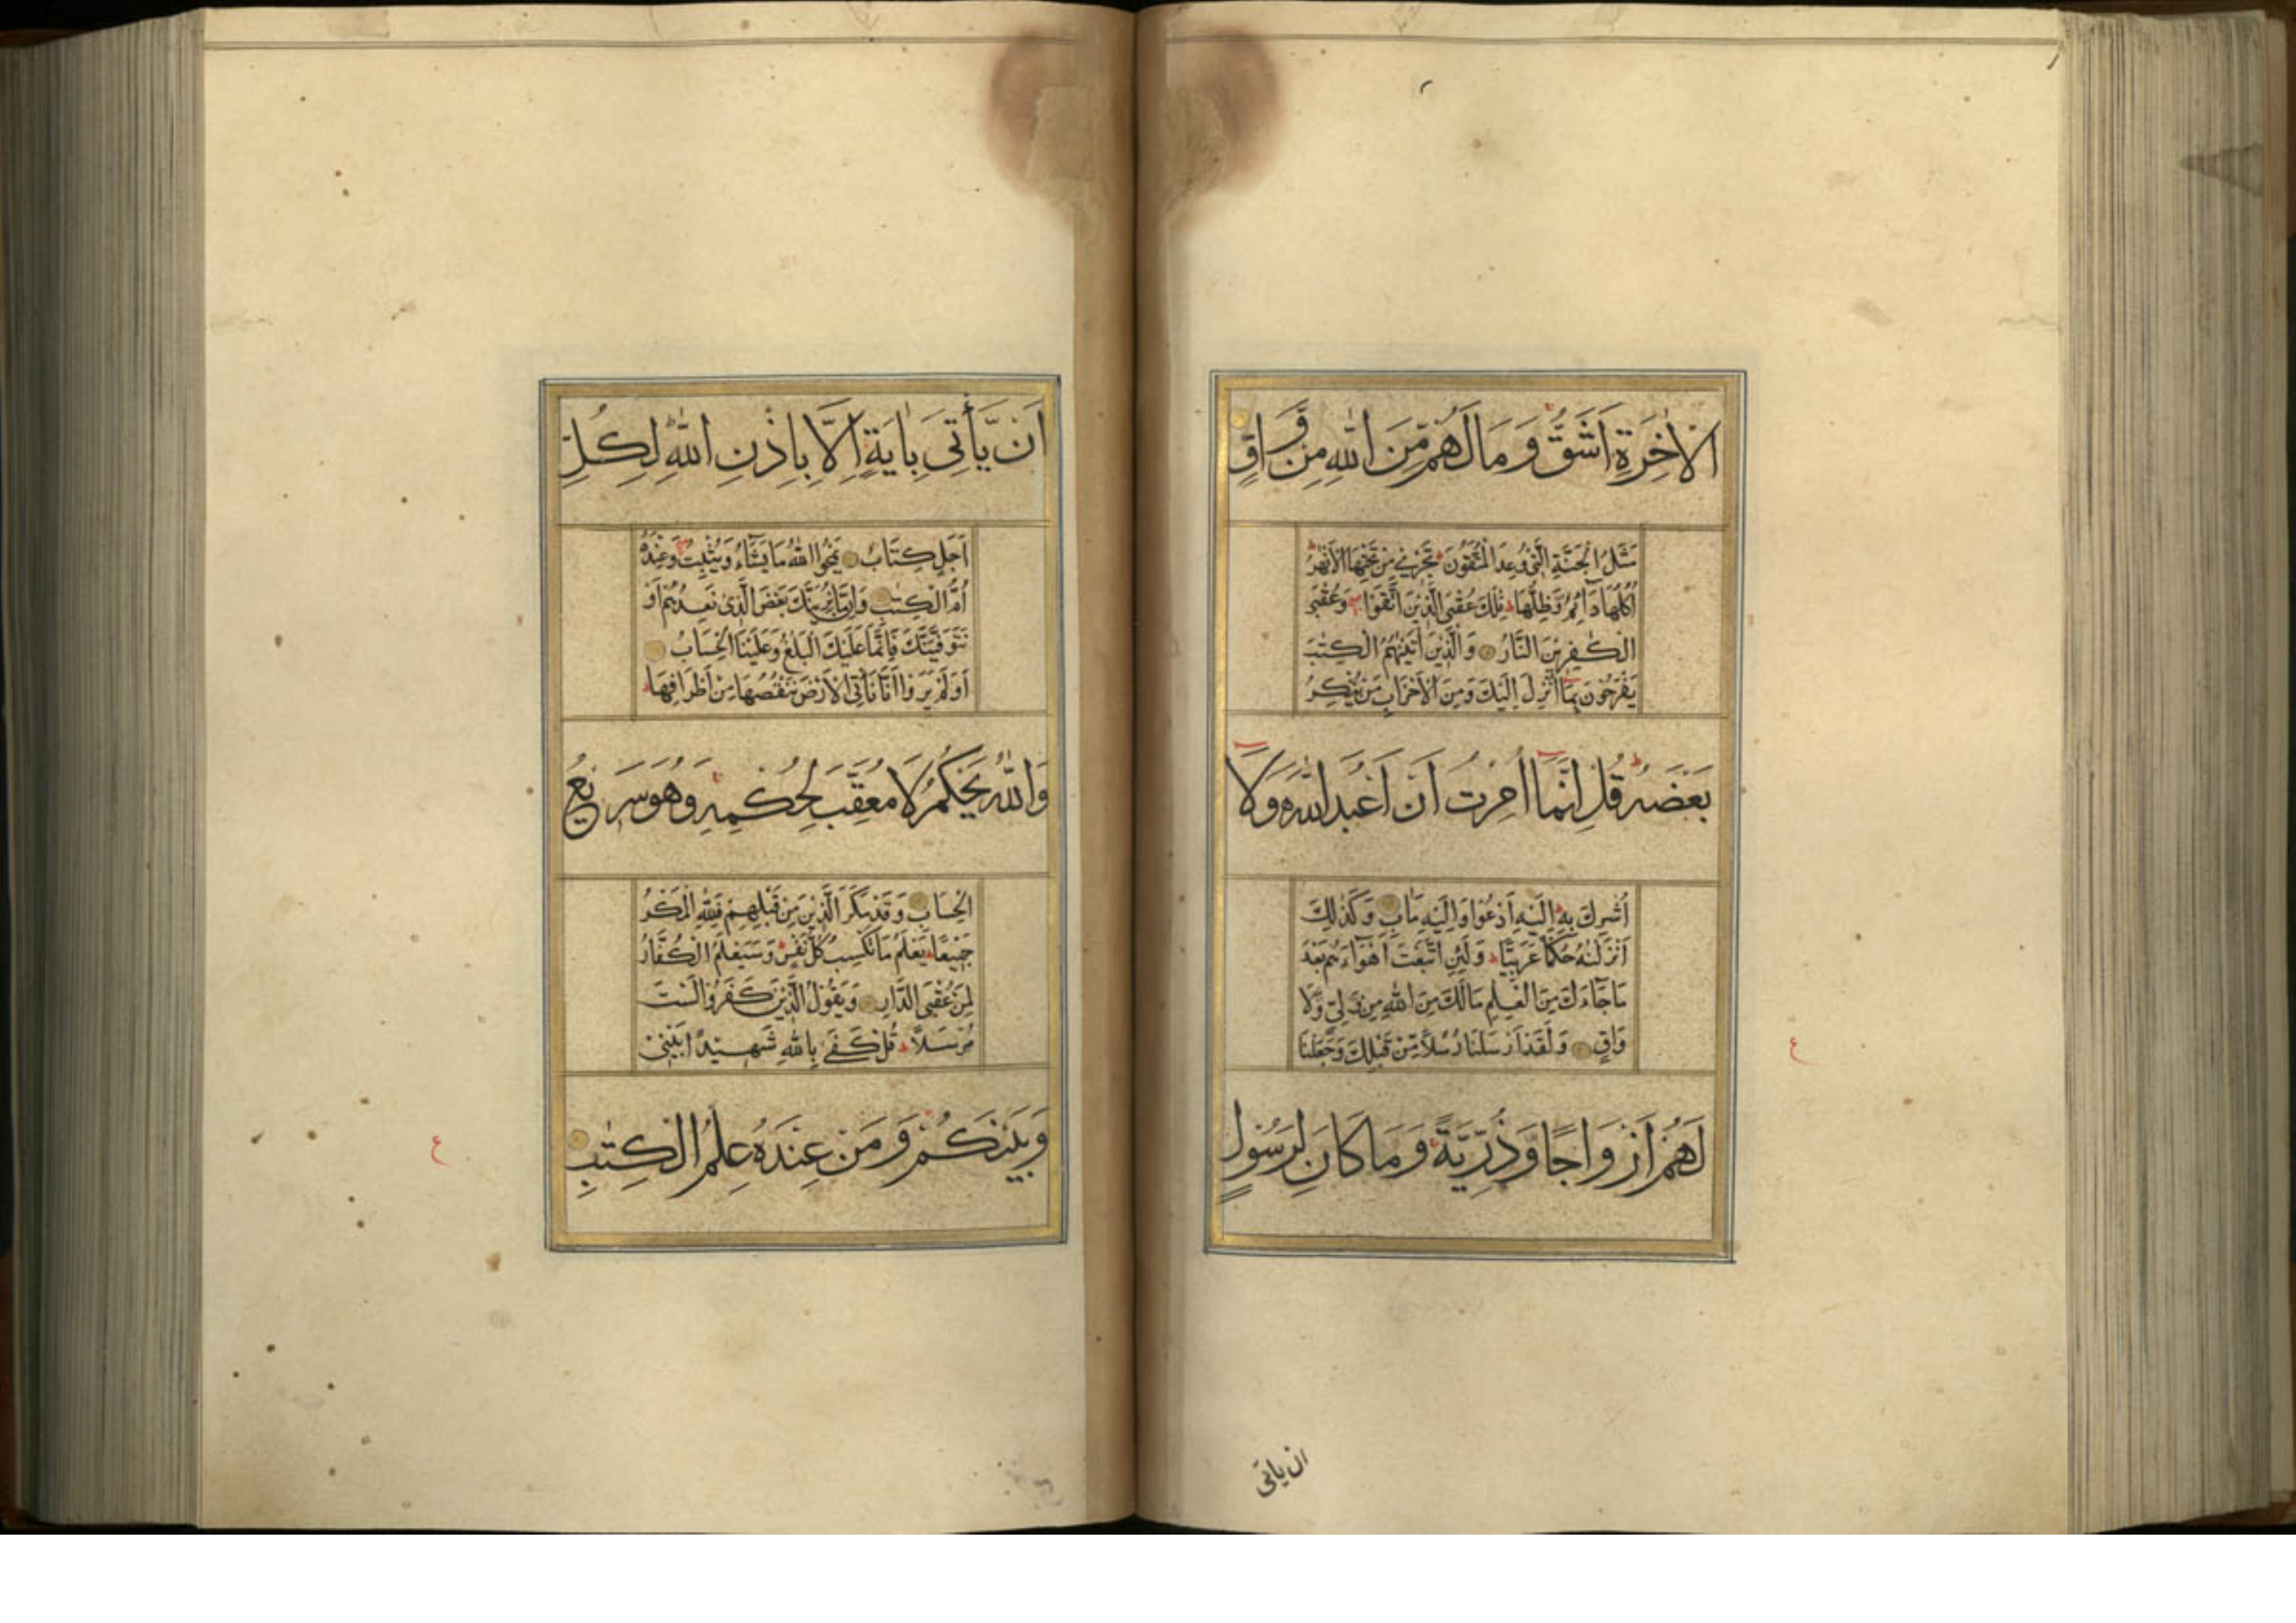 الْاٰخِرَةِ اَشَقُّ وَمَا لَهُمْ مِّنَ اللّٰهِ مِنْ وَّاقٍ
مَثَلُ الْجَنَّةِ الَّتِىْ وُعِدَ الْمُتَّقُوْنَ تَجْرِىْ مِنْ تَحْتِهَا الْاَنْهٰرُ
اُكُلُهَا دَآئِمٌ وَّظِلُّهَا تِلْكَ عُقْبَى الَّذِيْنَ اتَّقَوْا وَعُقْبَى
الْكٰفِرِيْنَ النَّارُ وَالَّذِيْنَ اٰتَيْنٰهُمُ الْكِتٰبَ
يَفْرَحُوْنَ بِمَا اُنْزِلَ اِلَيْكَ وَمِنَ الْاَحْزَابِ مَنْ يُّنْكِرُ
بَعْضَهٗ قُلْ اِنَّمَا اُمِرْتُ اَنْ اَعْبُدَ اللّٰهَ وَلَا
اُشْرِكَ بِهٖ اِلَيْهِ اَدْعُوْا وَاِلَيْهِ مَاٰبِ وَكَذٰلِكَ
اَنْزَلْنٰهُ حُكْمًا عَرَبِيًّا وَلَئِنِ اتَّبَعْتَ اَهْوَآءَهُمْ بَعْدَ
مَا جَآءَكَ مِنَ الْعِلْمِ مَا لَكَ مِنَ اللّٰهِ مِنْ وَّلِىٍّ وَّلَا
وَاقٍ وَلَقَدْ اَرْسَلْنَا رُسُلًا مِّنْ قَبْلِكَ وَجَعَلْنَا
لَهُمْ اَزْوَاجًا وَّذُرِّيَّةً وَمَا كَانَ لِرَسُوْلٍ
ع
ان ياتى
اَنْ يَّأْتِىَ بِاٰيَةٍ اِلَّا بِاِذْنِ اللّٰهِ لِكُلِّ
اَجَلٍ كِتَابٌ يَمْحُوا اللّٰهُ مَا يَشَآءُ وَيُثْبِتُ وَعِنْدَهٗ
اُمُّ الْكِتٰبِ وَاِنْ مَّا نُرِيَنَّكَ بَعْضَ الَّذِىْ نَعِدُهُمْ اَوْ
نَتَوَفَّيَنَّكَ فَاِنَّمَا عَلَيْكَ الْبَلٰغُ وَعَلَيْنَا الْحِسَابُ
اَوَلَمْ يَرَوْا اَنَّا نَأْتِى الْاَرْضَ نَنْقُصُهَا مِنْ اَطْرَافِهَا
وَاللّٰهُ يَحْكُمُ لَا مُعَقِّبَ لِحُكْمِهٖ وَهُوَ سَرِيْعُ
الْحِسَابِ وَقَدْ مَكَرَ الَّذِيْنَ مِنْ قَبْلِهِمْ فَلِلّٰهِ الْمَكْرُ
جَمِيْعًا يَعْلَمُ مَا تَكْسِبُ كُلُّ نَفْسٍ وَسَيَعْلَمُ الْكُفّٰرُ
لِمَنْ عُقْبَى الدَّارِ وَيَقُوْلُ الَّذِيْنَ كَفَرُوْا لَسْتَ
مُرْسَلًا قُلْ كَفٰى بِاللّٰهِ شَهِيْدًا بَيْنِىْ
وَبَيْنَكُمْ وَمَنْ عِنْدَهٗ عِلْمُ الْكِتٰبِ
ع